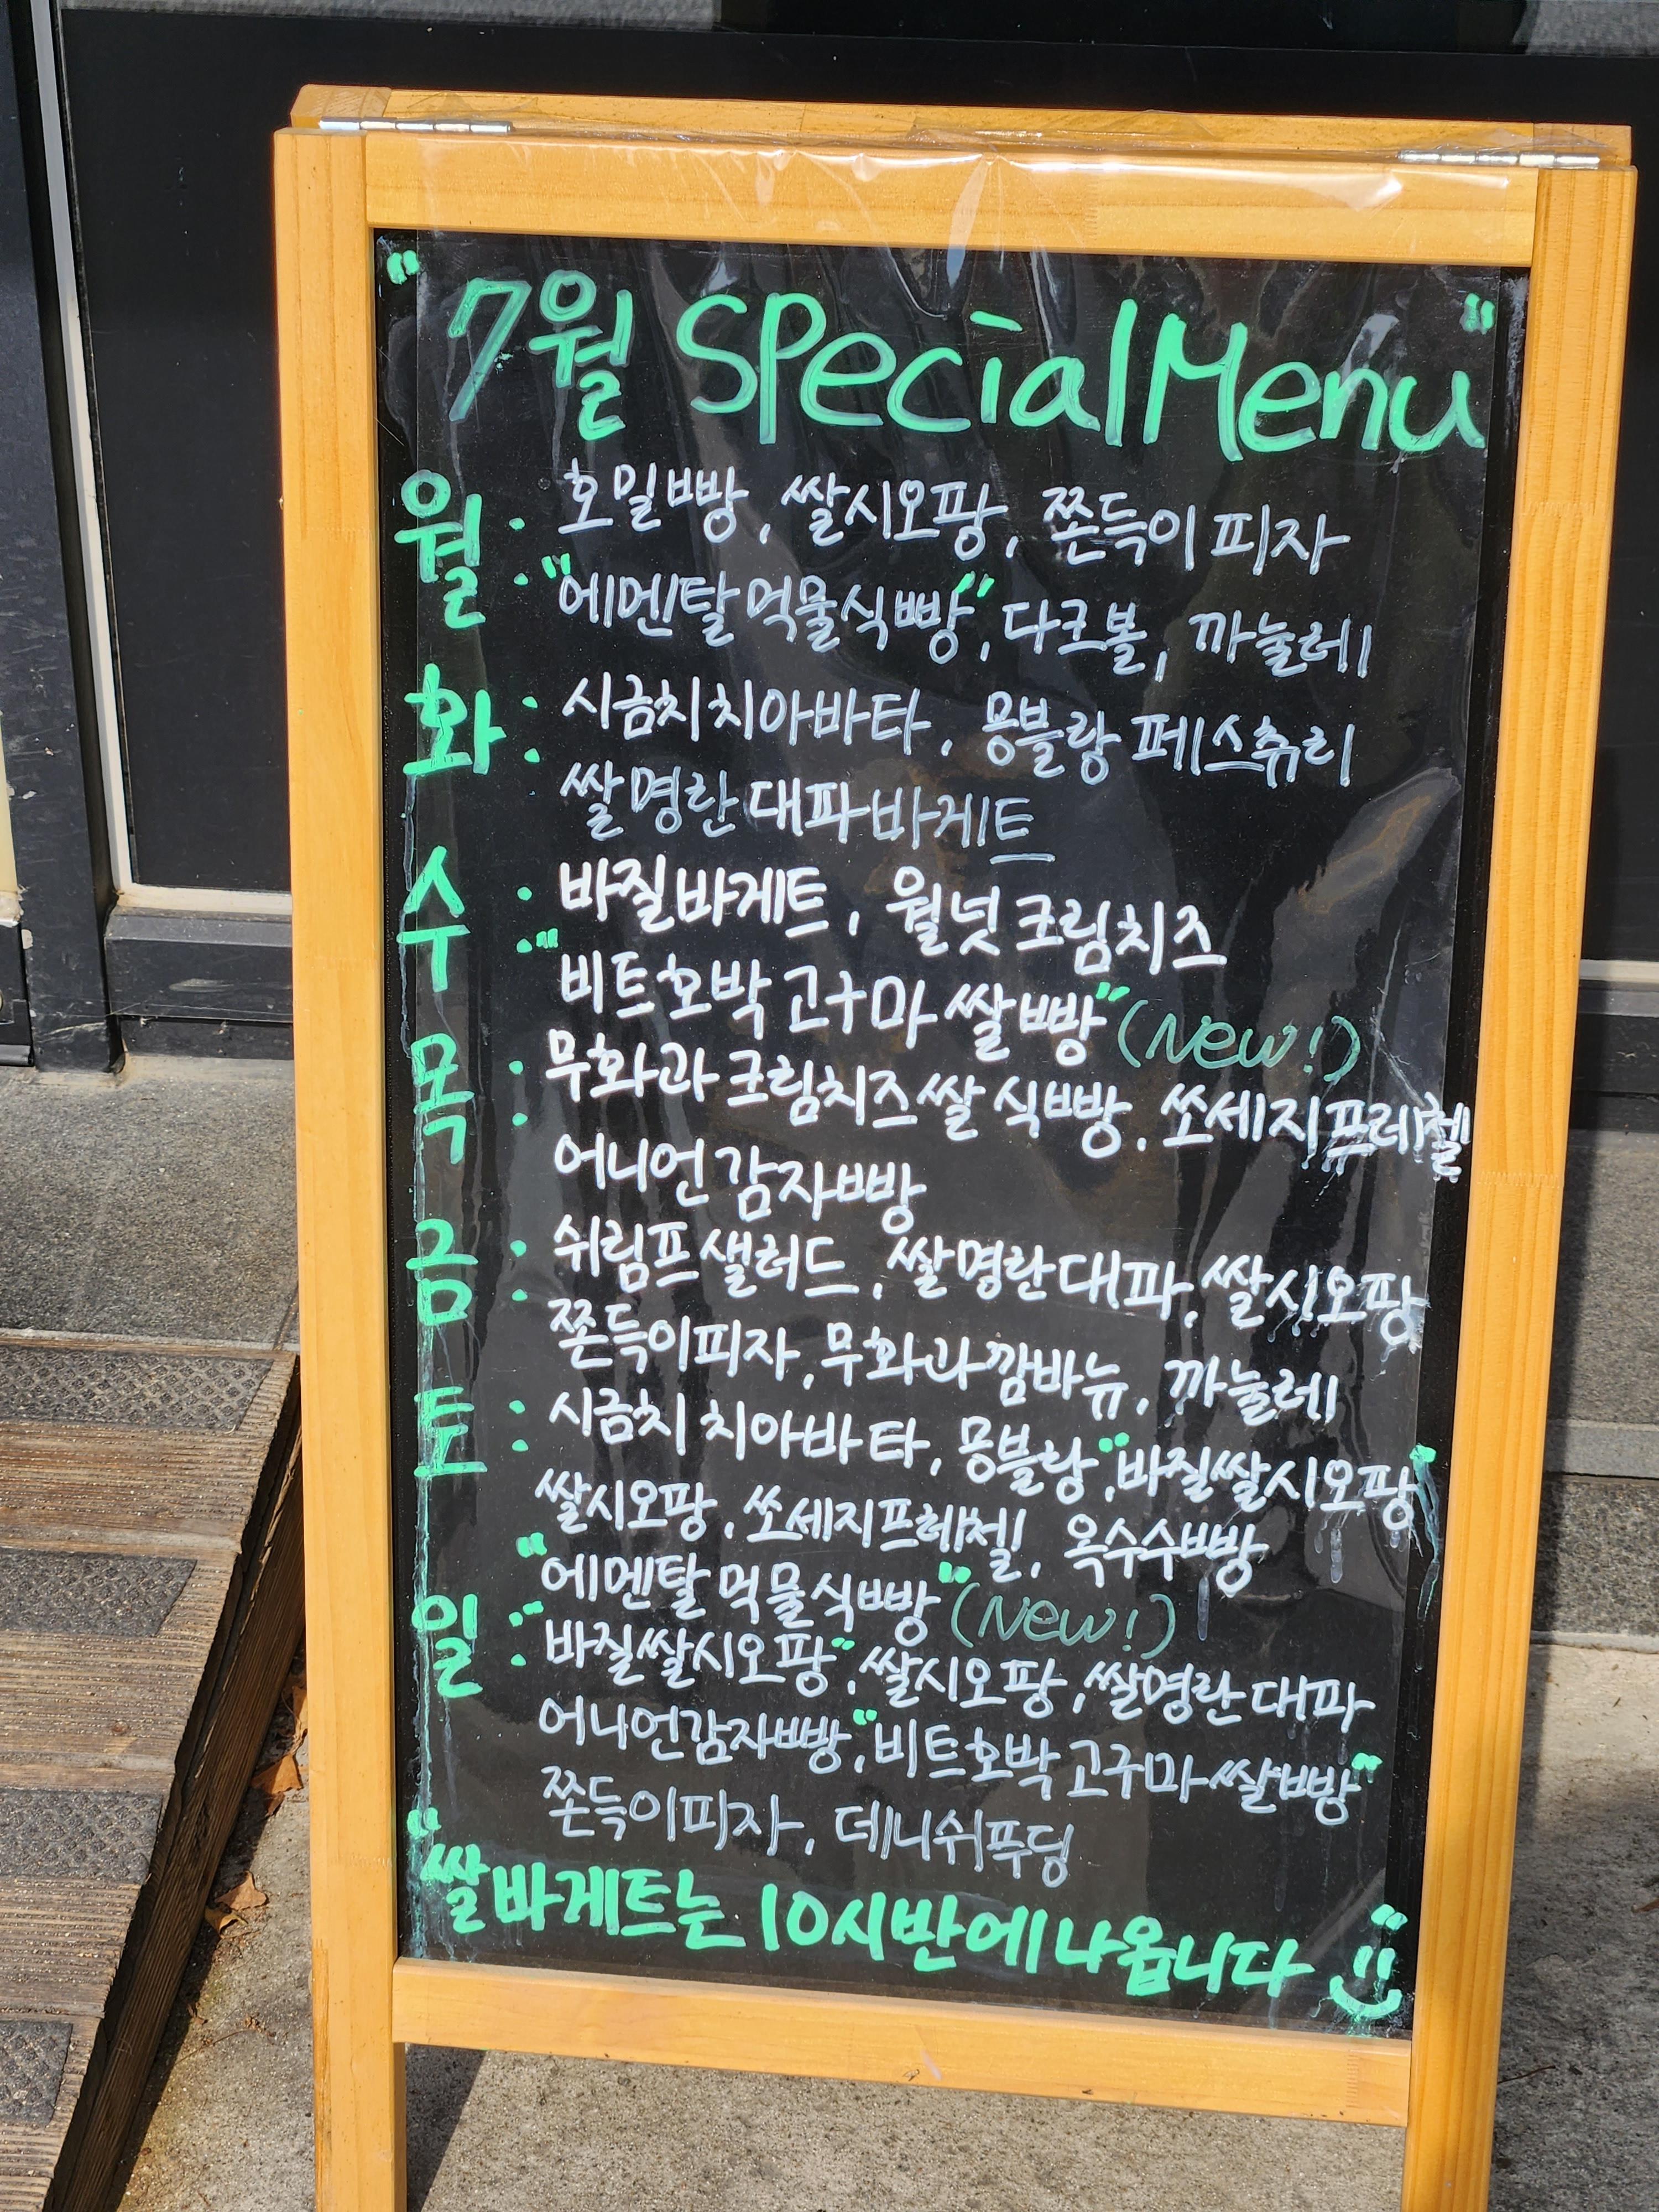 "7월 Special Menu"
월: 호밀빵, 쌀시오팡, 쫀득이 피자
"에멘탈 먹물식빵", 다크볼, 까눌레
화: 시금치치아바타, 몽블랑 페스츄리
쌀명란 대파바게트
수: 바질바게트, 월넛크림치즈
"비트호박 고구마 쌀빵" (New!)
목: 무화과 크림치즈쌀 식빵, 쏘세지프레첼
어니언 감자빵
금: 쉬림프 샐러드, 쌀명란대파, 쌀시오팡
쫀득이피자, 무화과깜바뉴, 까눌레
토: 시금치 치아바타, 몽블랑, "바질쌀시오팡"
쌀시오팡, 쏘세지프레첼, 옥수수빵
"에멘탈 먹물식빵" (New!)
일: "바질쌀시오팡", 쌀시오팡, 쌀명란대파
어니언감자빵, "비트호박 고구마쌀빵"
쫀득이피자, 데니쉬푸딩
"쌀바게트는 10시반에 나옵니다"